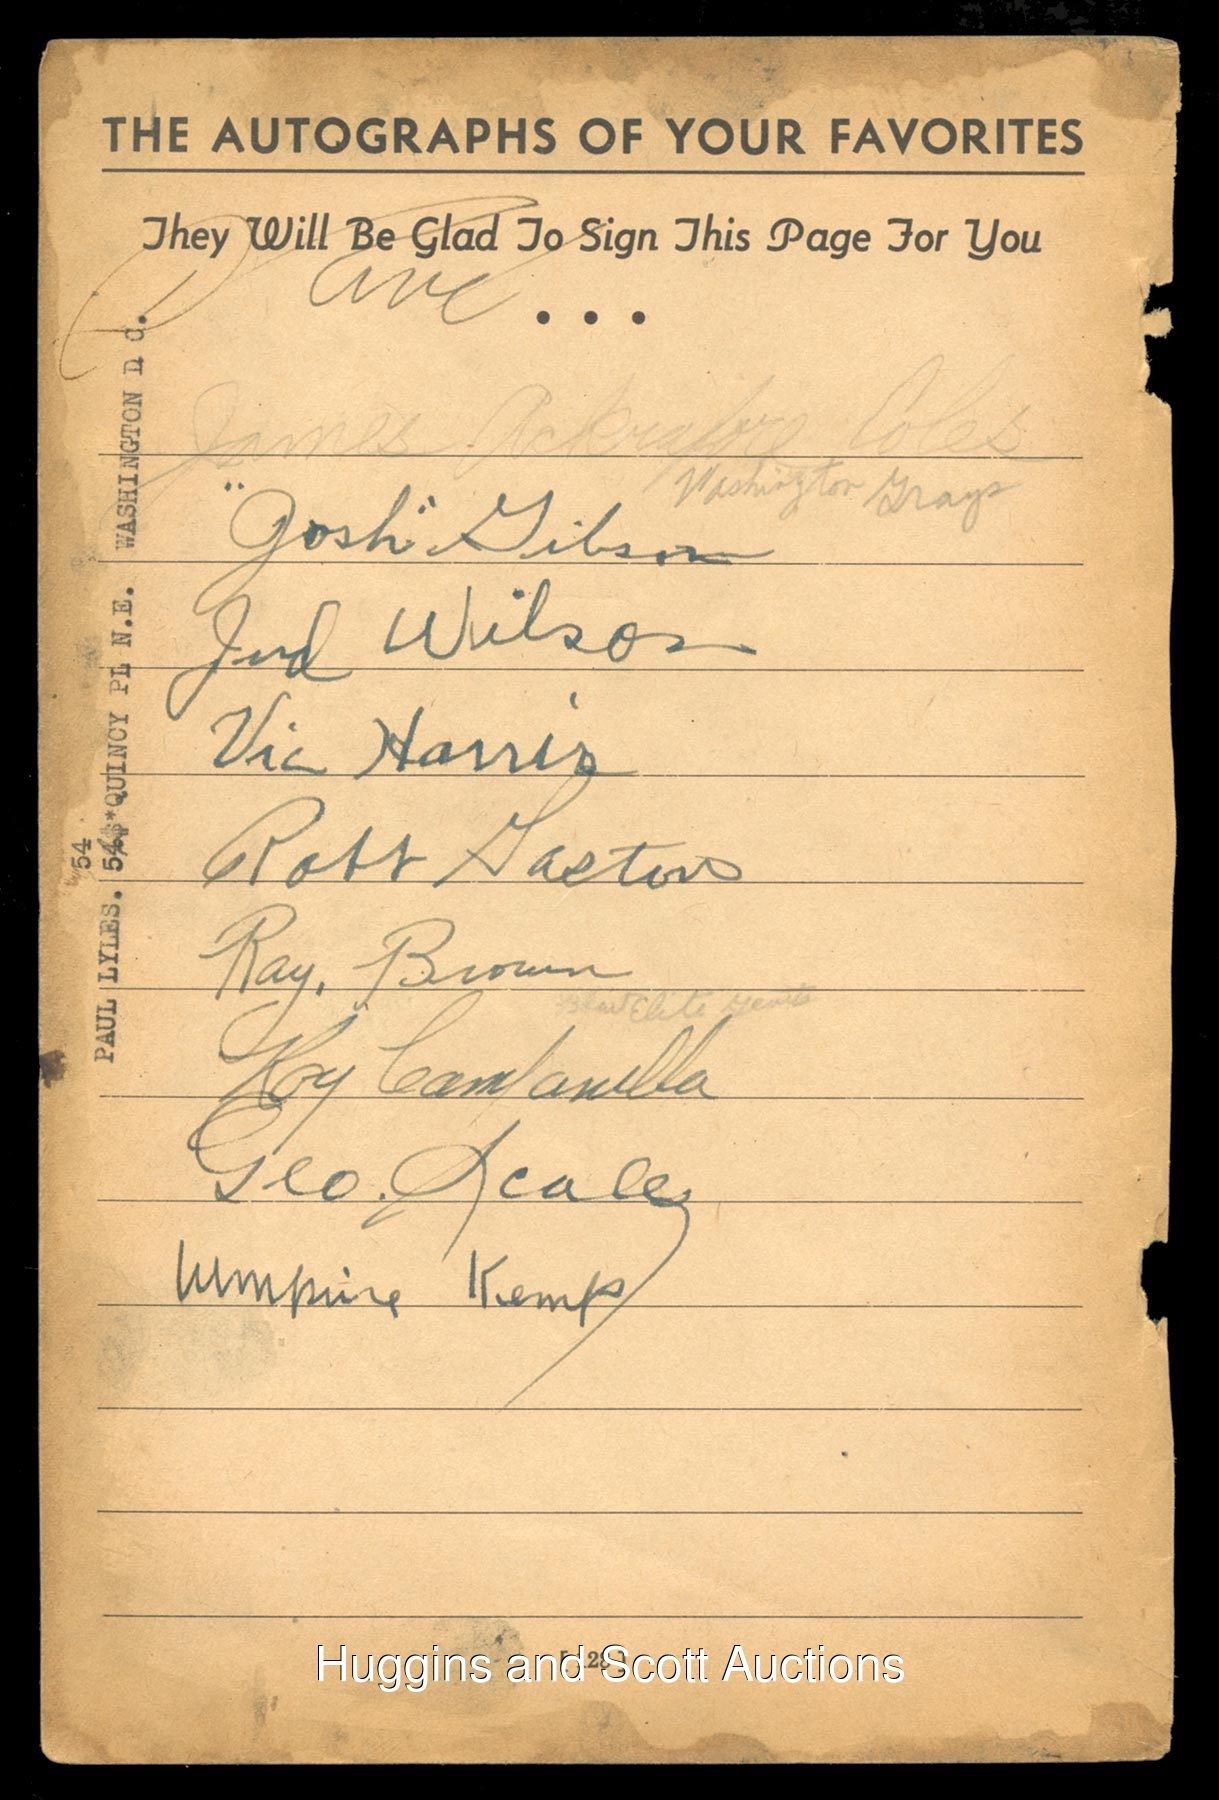 THE AUTOGRAPHS OF YOUR FAVORITES
They Will Be Glad To Sign This Page For You
Dave
• • •
James Coles
Washington Grays
"Josh" Gibson
Jud Wilson
Vic Harris
Robt Gaston
Ray. Brown
Elite Giants
Roy Campanella
Geo. Scales
Umpire Kemp
PAUL LYLES. 54 QUINCY PL N.E. WASHINGTON D C.
54
Huggins and Scott Auctions